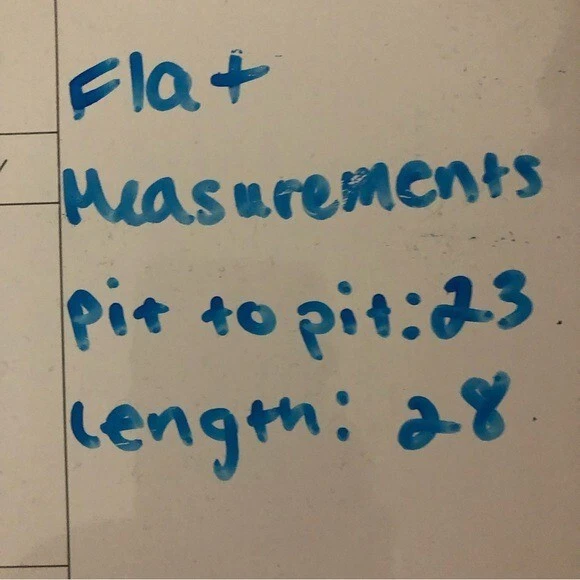 Flat
Measurements
pit to pit: 23
length: 28